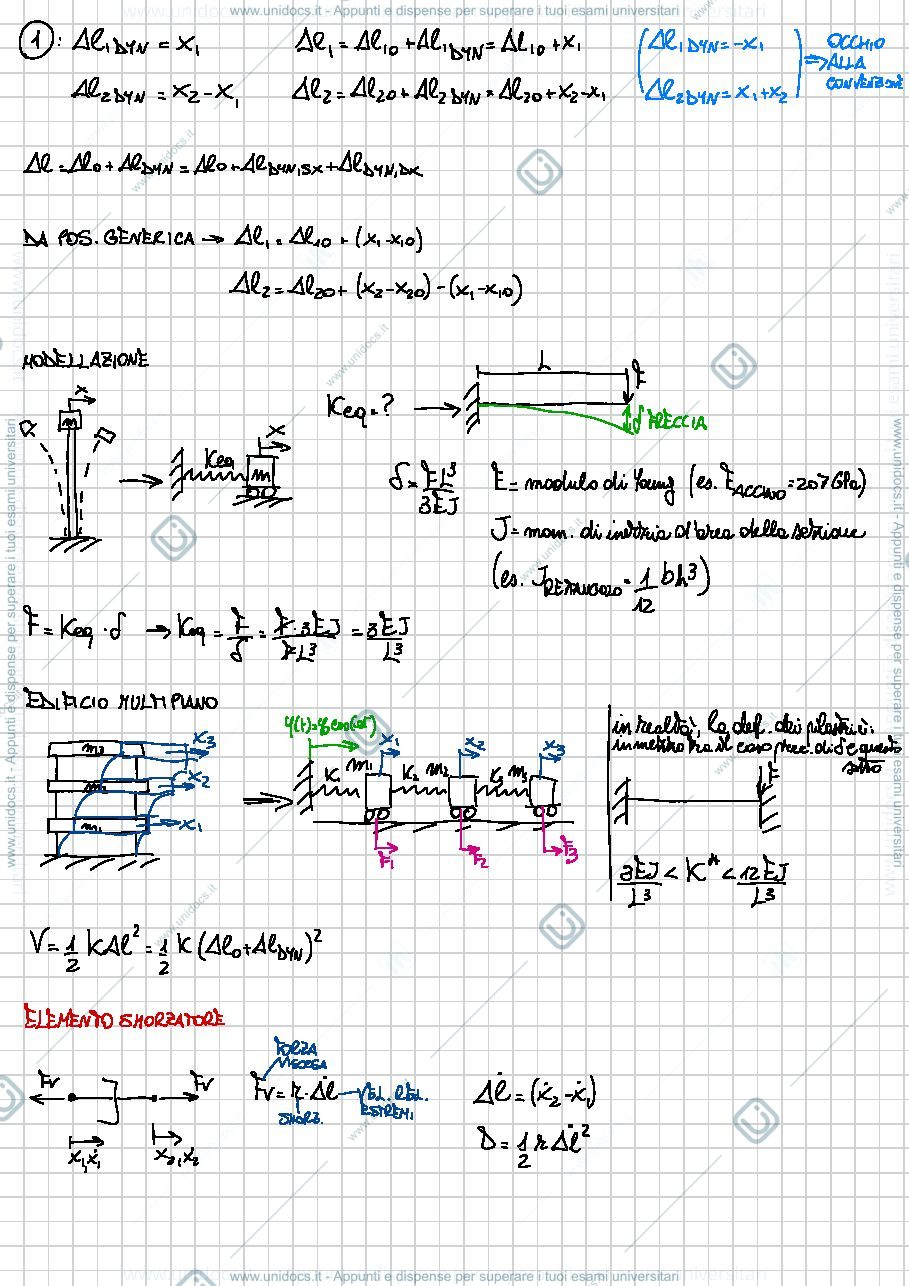 www.unidocs.it - Appunti e dispense per superare i tuoi esami universitari
① : Δl₁DYN = x₁   Δl₁ = Δl₁₀ + Δl₁DYN = Δl₁₀ + x₁   (Δl₁DYN = -x₁   ⇒ OCCHIO ALLA CONVENZIONE
Δl₂DYN = x₂ - x₁   Δl₂ = Δl₂₀ + Δl₂DYN = Δl₂₀ + x₂ - x₁   Δl₂DYN = x₁ + x₂)
Δl = Δl₀ + ΔlDYN = Δl₀ + ΔlDYN,SX + ΔlDYN,DX
DA POS. GENERICA → Δl₁ = Δl₁₀ + (x₁ - x₁₀)
Δl₂ = Δl₂₀ + (x₂ - x₂₀) - (x₁ - x₁₀)
MODELLAZIONE
x
m
Keq
x
m
Keq = ? →
L
F
δ FRECCIA
δ = FL³/3EJ   E = modulo di Young (es. EACCIAIO = 207 GPa)
J = mom. di inerzia d'area della sezione
(es. JRETTANGOLO = 1/12 bh³)
F = Keq · δ → Keq = F/δ = F·3EJ/FL³ = 3EJ/L³
EDIFICIO MULTIPIANO
m₃ x₃
m₂ x₂
m₁ x₁
k₁ m₁ k₂ m₂ k₃ m₃
x₁ x₂ x₃
F₁ F₂ F₃
in realtà, la def. dei pilastri è:
in mezzo tra il caso prec. di δ e questo
sotto
F
3EJ/L³ < K* < 12EJ/L³
V = 1/2 kΔl² = 1/2 k (Δl₀ + ΔlDYN)²
ELEMENTO SMORZATORE
Fv Fv
x₁, ẋ₁ x₂, ẋ₂
FORZA
VISCOSA
Fv = r · Δl̇ VEL. REL.
ESTREMI
SMORZ.
Δl̇ = (ẋ₂ - ẋ₁)
D = 1/2 r Δl̇²
www.unidocs.it - Appunti e dispense per superare i tuoi esami universitari